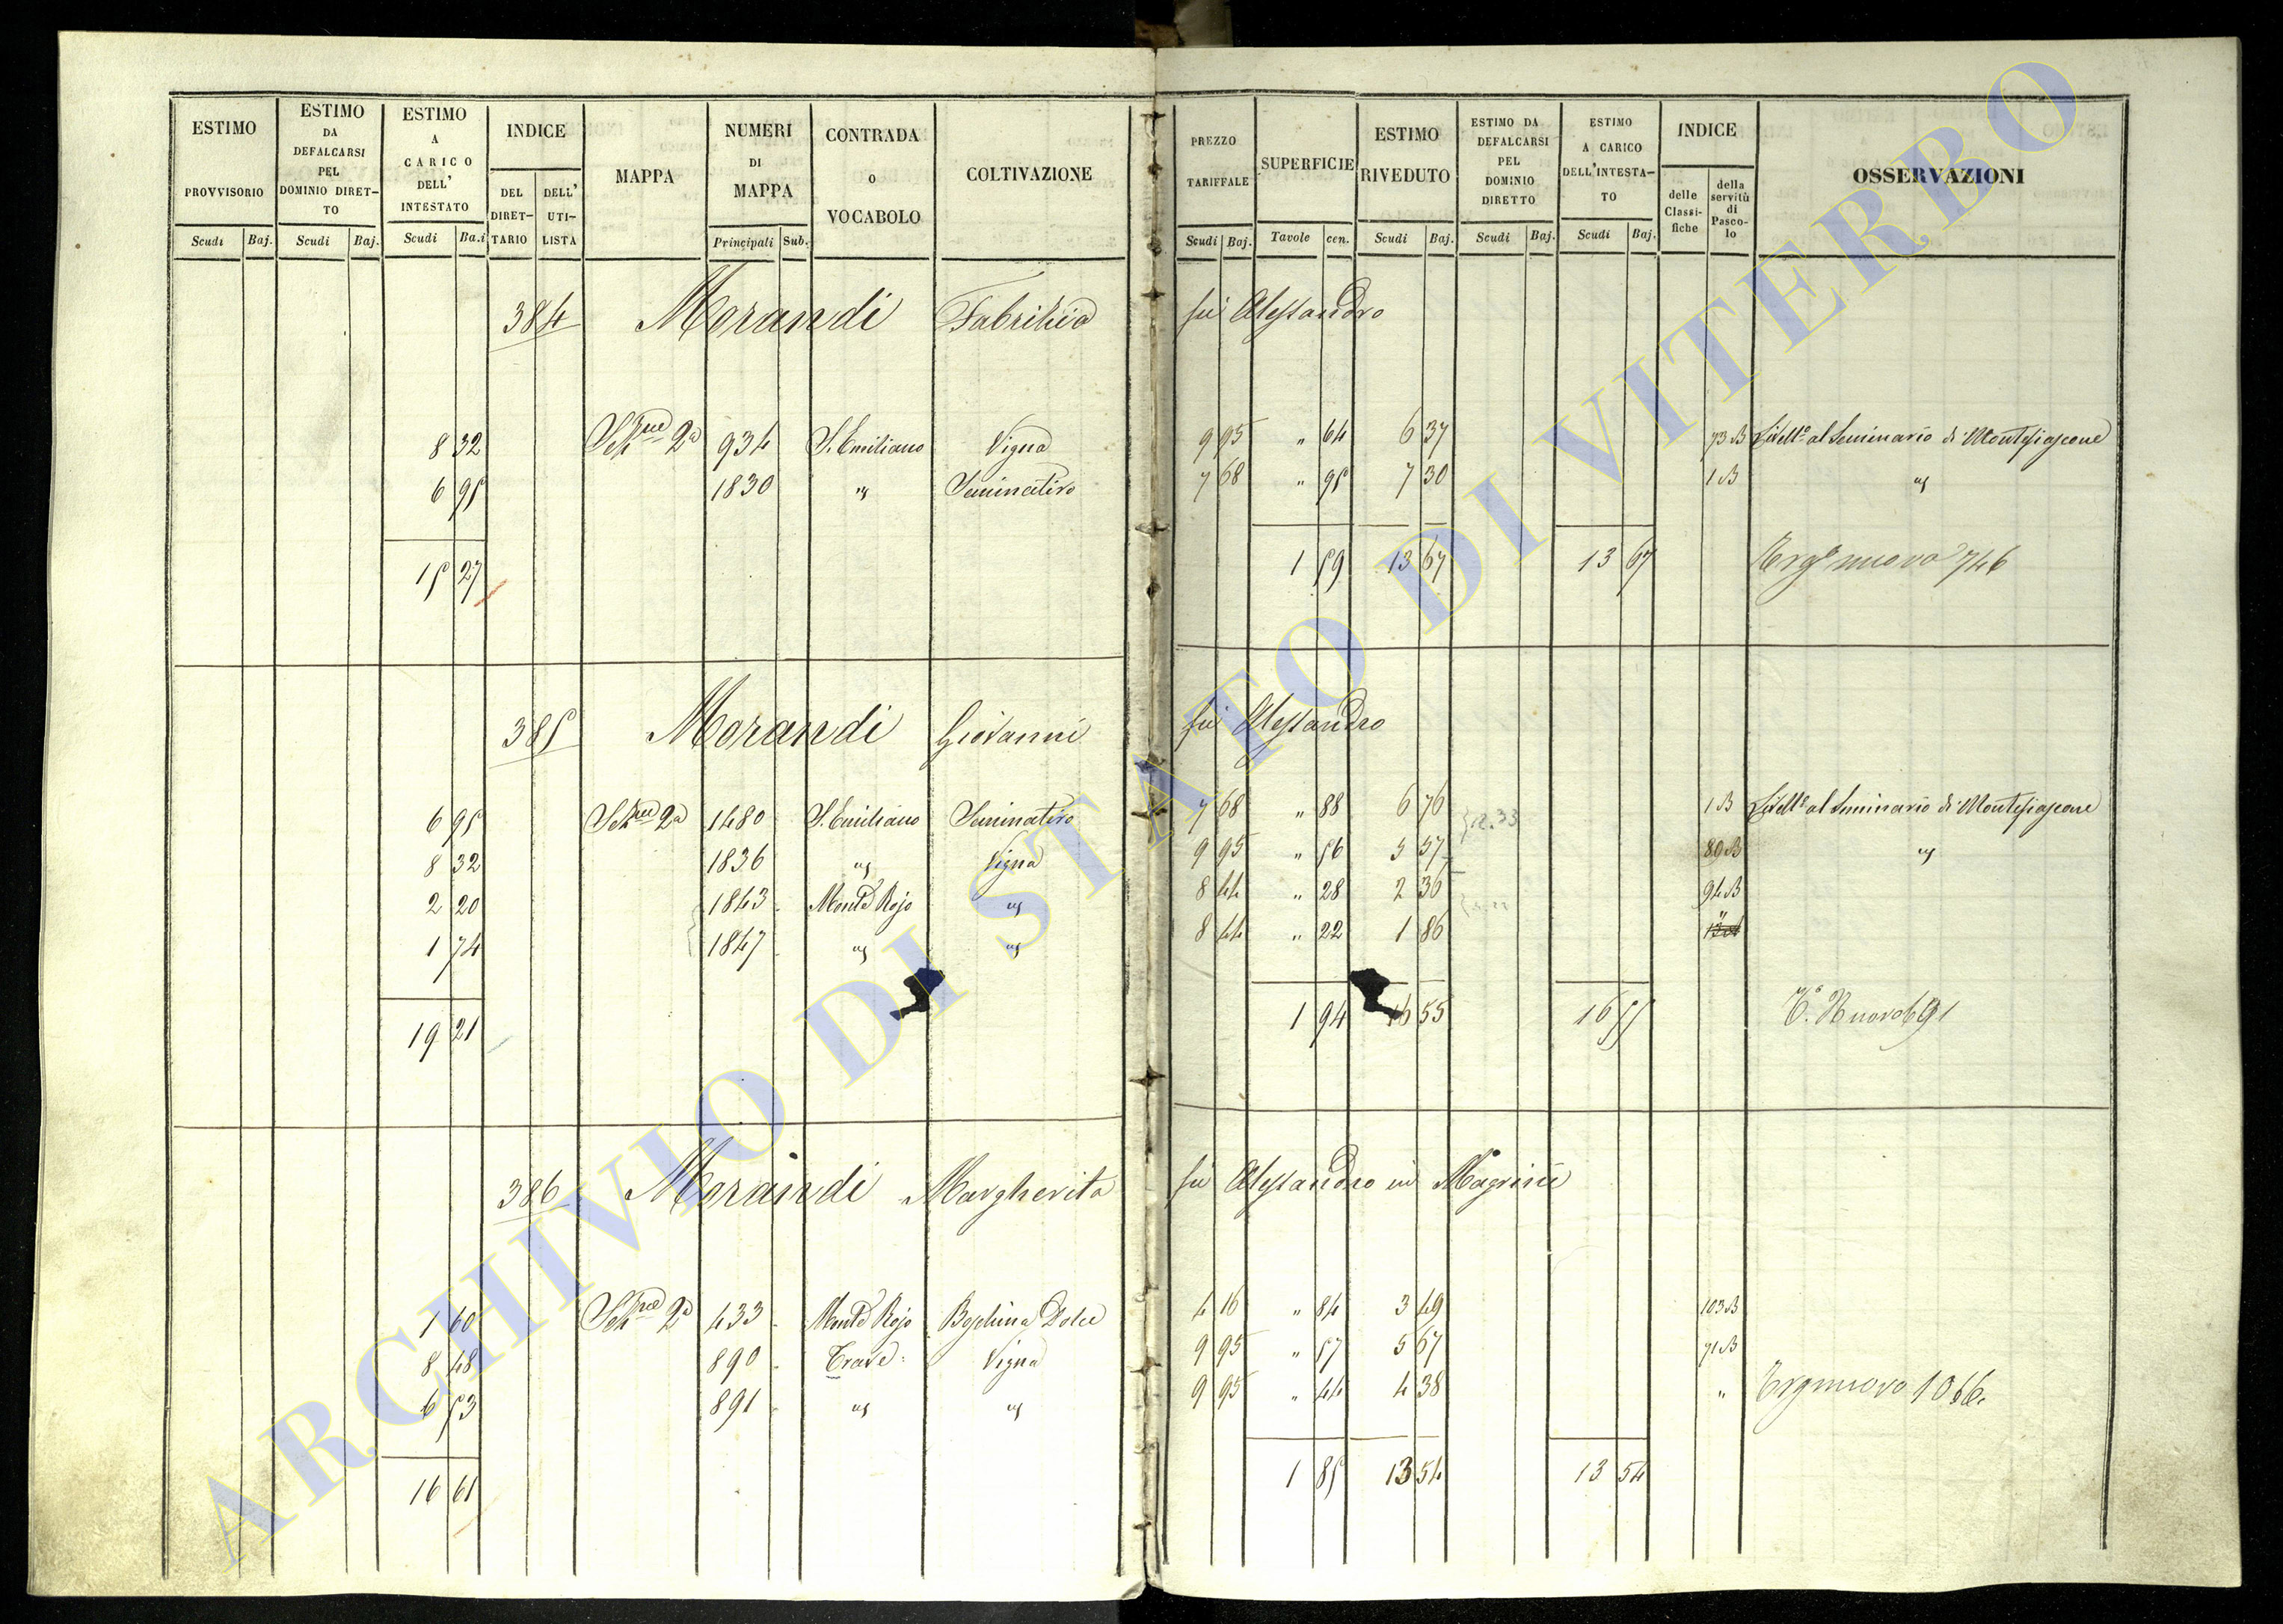 ESTIMO PROVVISORIO Scudi Baj.
ESTIMO DA DEFALCARSI PEL DOMINIO DIRET- TO Scudi Baj.
ESTIMO A CARICO DELL' INTESTATO Scudi Ba.i
INDICE DEL DIRET- TARIO DELL' UTI- LISTA
MAPPA
NUMERI DI MAPPA Principali Sub.
CONTRADA O VOCABOLO
COLTIVAZIONE
PREZZO TARIFFALE Scudi Baj.
SUPERFICIE Tavole cen.
ESTIMO RIVEDUTO Scudi Baj.
ESTIMO DA DEFALCARSI PEL DOMINIO DIRETTO Scudi Baj.
ESTIMO A CARICO DELL'INTESTA- TO Scudi Baj.
INDICE delle Classi- fiche della servitù di Pasco- lo
OSSERVAZIONI
384 Morandi Fabrizio fu Alessandro
8 32 Sez.ne 2a 934 S. Emiliano Vigna 9 95 " 64 6 37 73 B Livell.o al Seminario di Montefiascone
6 95 1830 " Seminativo 7 68 " 95 7 30 1 B "
15 27 1 59 13 67 13 67 nuovo 746
385 Morandi Giovanni fu Alessandro
6 95 Sez.ne 2a 1480 S. Emiliano Seminativo 7 68 " 88 6 76 1 B Livell.o al Seminario di Montefiascone
8 32 1836 " Vigna 9 95 " 56 5 57 89 B "
2 20 1843 Monte Rojo " 8 44 " 28 2 36 94 B
1 74 1847 " " 8 44 " 22 1 86
19 21 1 94 16 55 16 55 Nuovo 691
386 Morandi Margherita fu Alessandro in Magrini
1 60 Sez.ne 2a 433 Monte Rojo Boschina Dolce 4 16 " 84 3 49 103 B
8 48 890 Trave Vigna 9 95 " 57 5 67 71 B
6 53 891 " " 9 95 " 44 4 38 " nuovo 1066
16 61 1 85 13 54 13 54
ARCHIVIO DI STATO DI VITERBO